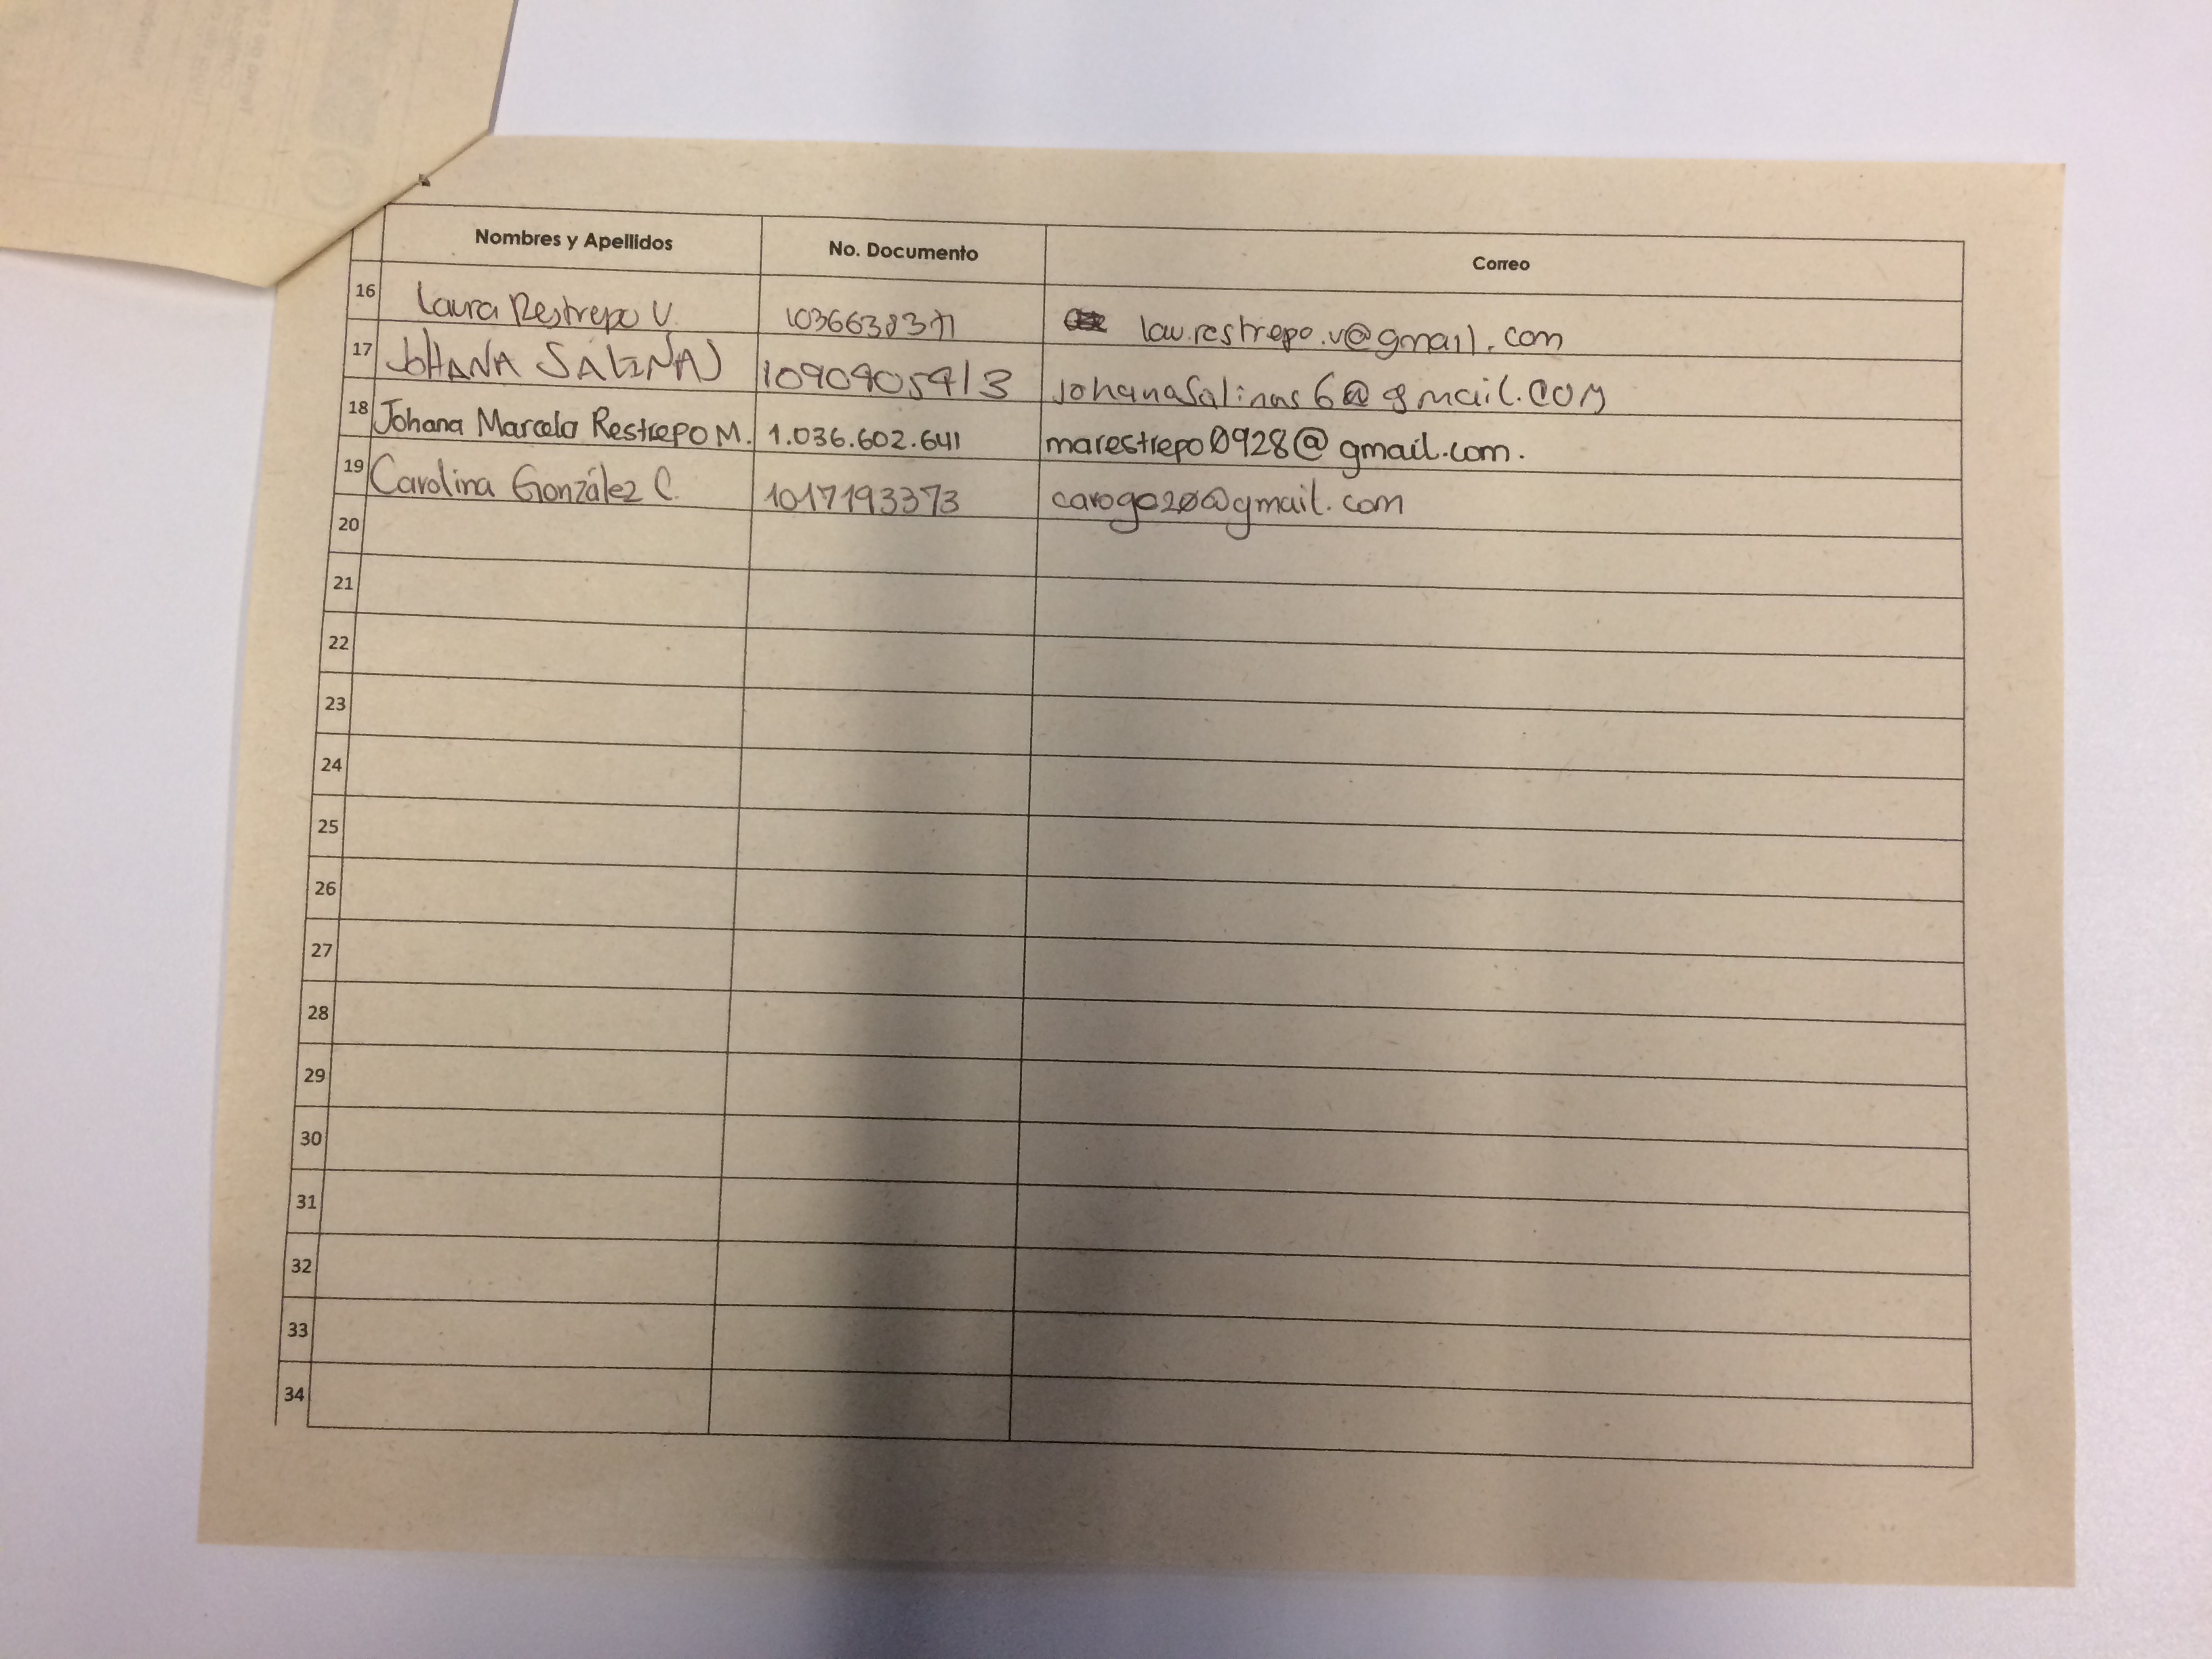 Nombres y Apellidos No. Documento Correo
16 Laura Restrepo V. lau.restrepo.v@gmail.com
17 JOHANA SALINAS 1090405913 johanasalinas6@gmail.com
18 Johana Marcela Restrepo M. 1.036.602.641 marestrepo0928@gmail.com.
19 Carolina González C. 1017193373 caroga20@gmail.com
20
21
22
23
24
25
26
27
28
29
30
31
32
33
34